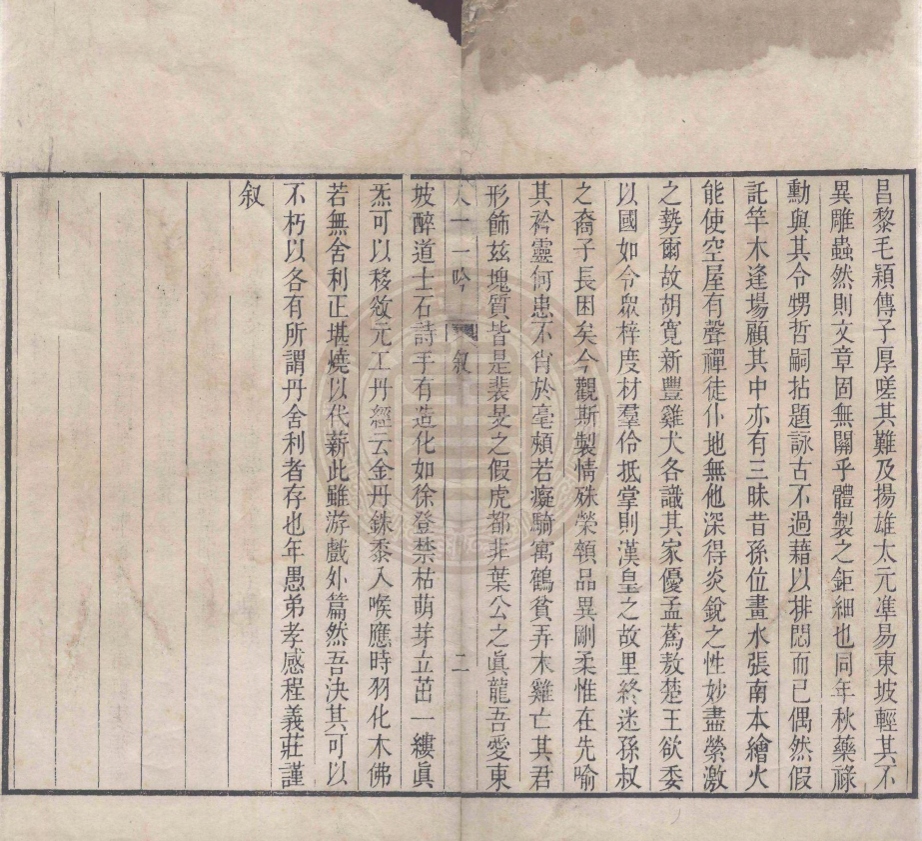 昌黎毛穎傳子厚嗟其難及揚雄太元準易東坡輕其不
異雕蟲然則文章固無關乎體製之鉅細也同年秋藥祿
勳與其令甥哲嗣拈題詠古不過藉以排悶而已偶然假
託竿木逢場顧其中亦有三昧昔孫位畫水張南本繪火
能使空屋有聲禪徒仆地無他深得炎銳之性妙盡縈激
之勢爾故胡寬新豐雞犬各識其家優孟蔿敖楚王欲委
以國如令眾梓度材羣伶抵掌則漢皇之故里終迷孫叔
之裔子長困矣今觀斯製情殊榮頓品異剛柔惟在先喻
其衿靈何患不肖於毫頰若癡騎寓鶴貧弄木雞亡其君
形飾茲塊質皆是裴旻之假虎都非葉公之眞龍吾愛東
一一吟 叙 二
坡醉道士石詩手有造化如徐登禁枯萌芽立茁一縷眞
炁可以移奪元工丹經云金丹銖黍入喉應時羽化木佛
若無舍利正堪燒以代薪此雖游戲外篇然吾決其可以
不朽以各有所謂丹舍利者存也年愚弟孝感程義莊謹
叙